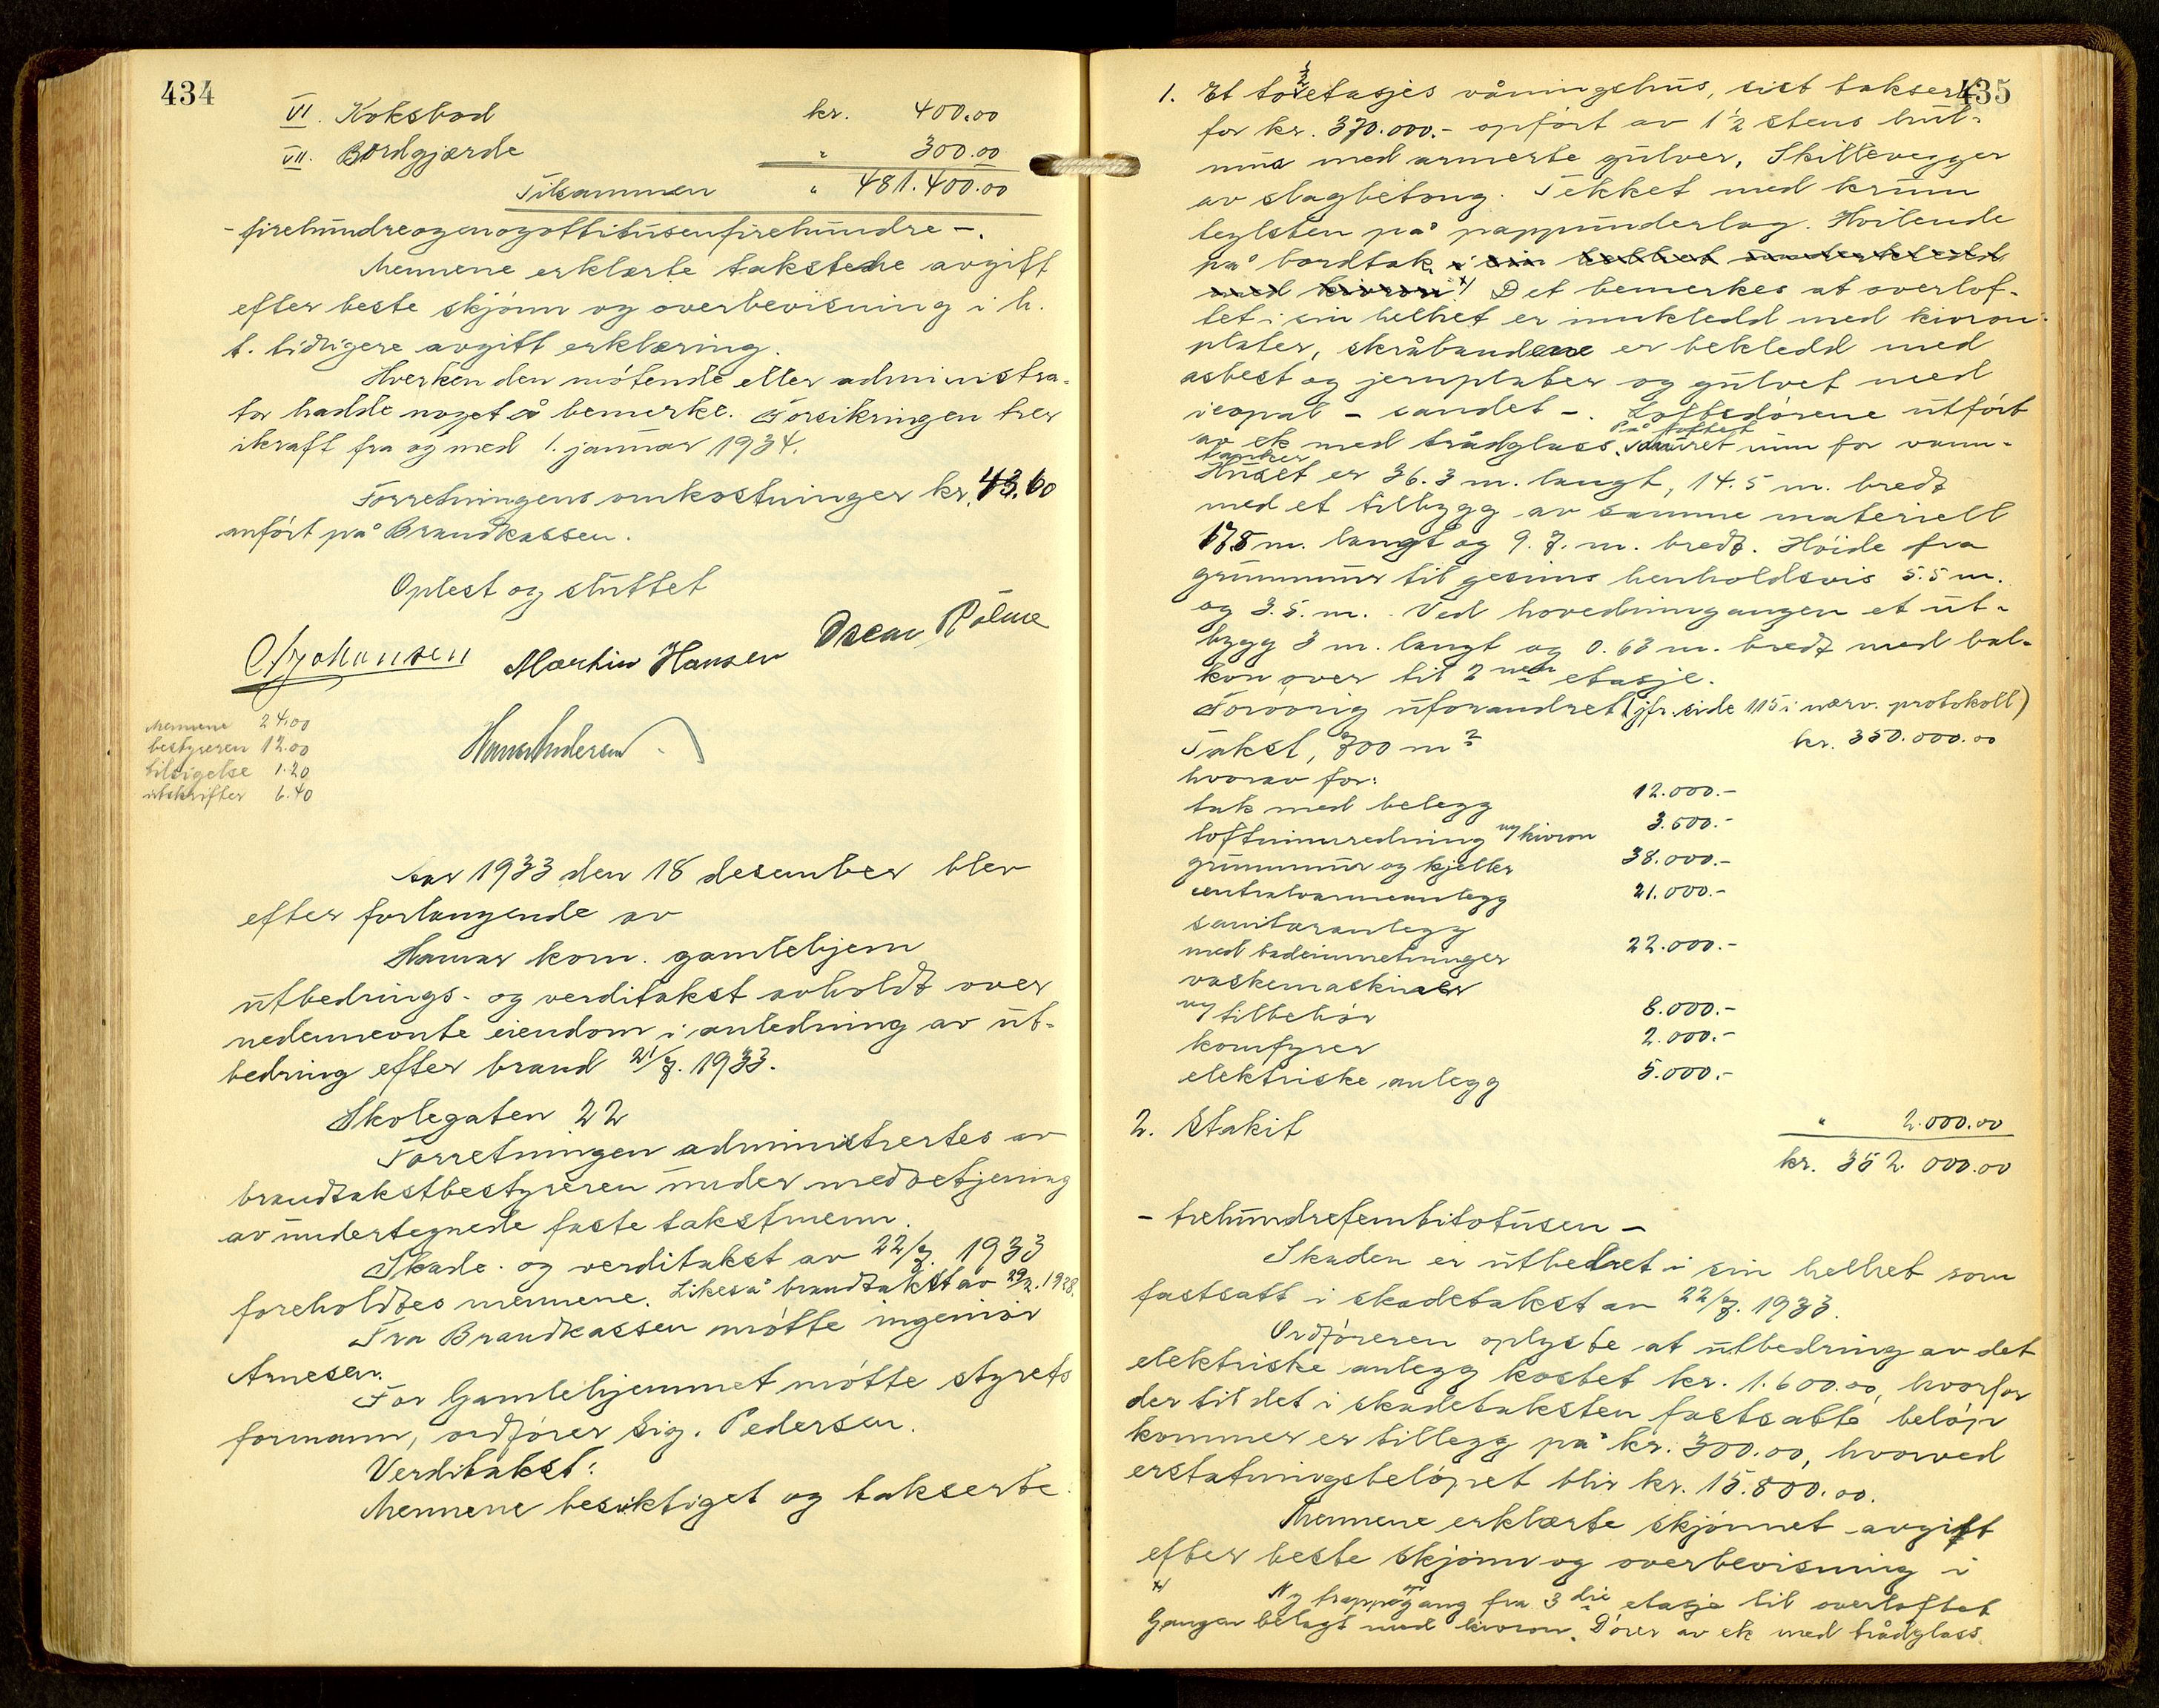 434
VI. Koksbod kr. 400.00
VII. Bordgjærde " 300.00
Tilsammen " 481.400.00
- firehundreogenogottitusenfirehundre -.
Mennene erklærte takstene avgitt
efter beste skjønn og overbevisning i h.
t. tidligere avgitt erklæring.
Hverken den møtende eller administra-
tor hadde noget å bemerke. Forsikringen trer
ikraft fra og med 1. januar 1934.
Forretningens omkostninger kr. 43.60
anført på Brandkassen.
Oplest og sluttet
Johansen Martin Hansen Oscar Pølme
Hans Andersen
Mennene 24.00
bestyreren 12.00
tilsigelse 1.20
utskrifter 6.40
Aar 1933 den 18 desember blev
efter forlangende av
Hamar kom. gamlehjem
utbedrings- og verditakst avholdt over
nedennevnte eiendom i anledning av ut-
bedring efter brand 21/7. 1933.
Skolegaten 22
Forretningen administrertes av
brandtakstbestyreren under medbetjening
av undertegnede faste takstmenn.
Skade- og verditakst av 22/7. 1933
foreholdtes mennene. Likeså brandtakst av 29/2. 1928.
Fra Brandkassen møtte ingeniør
Arnesen.
For Gamlehjemmet møtte styrets
formann, ordfører Sig. Pedersen.
Verditakst:
Mennene besiktiget og takserte
435
1. Et to 1/2 etasjes våningshus, sist taksert
for kr. 370.000.- opført av 1 1/2 stens hul-
mur med armerte gulver, Skillevegger
av slagbetong. Tekket med krum
teglsten på pappunderlag. Hvilende
på bordtak i sin helhet underkledd
med kivron x) Det bemerkes at overlof-
tet i sin helhet er innkledd med kivron-
plater, skråbåndene er bekledd med
asbest og jernplater og gulvet med
icopal - sandet -. Loftsdørene utført
av ek med trådglass. På loftet muret rum for vann-
tanker
Huset er 36.3 m. langt, 14.5 m. bredt
med et tilbygg av samme materiell
17.5 m. langt og 9.7. m. bredt. Høide fra
grunnmur til gesims henholdsvis 5.5 m.
og 3.5. m. Ved hovedinngangen et ut-
bygg 3 m. langt og 0.63 m. bredt med bal-
kon over til 2 nen etasje.
Forøvrig uforandret (jfr. side 115 i nærv. protokoll)
Takst, 700 m² kr. 350.000.00
hvorav for:
tak med belegg 12.000.-
loftsinnredning m/kivron 3.500.-
grunnmur og kjeller 38.000.-
centralvarmeanlegg 21.000.-
sanitæranlegg
med badeinnretninger 22.000.-
vaskemaskiner
m/tilbehør 8.000.-
komfyrer 2.000.-
elektriske anlegg 5.000.-
2. Stakit " 2.000.00
kr. 352.000.00
- trehundrefemtitotusen -
Skaden er utbedret i sin helhet som
fastsatt i skadetakst av 22/7. 1933.
Ordføreren oplyste at utbedring av det
elektriske anlegg kostet kr. 1.600.00, hvorfor
der til det i skadetaksten fastsatte beløp
kommer er tillegg på kr. 300.00, hvorved
erstatningsbeløpet blir kr. 15.800.00.
Mennene erklærte skjønnet avgitt
efter beste skjønn og overbevisning i
x) Ny trappegang fra 3 die etasje til overloftet
Gangen belagt med kivron. Dører av ek med trådglass.